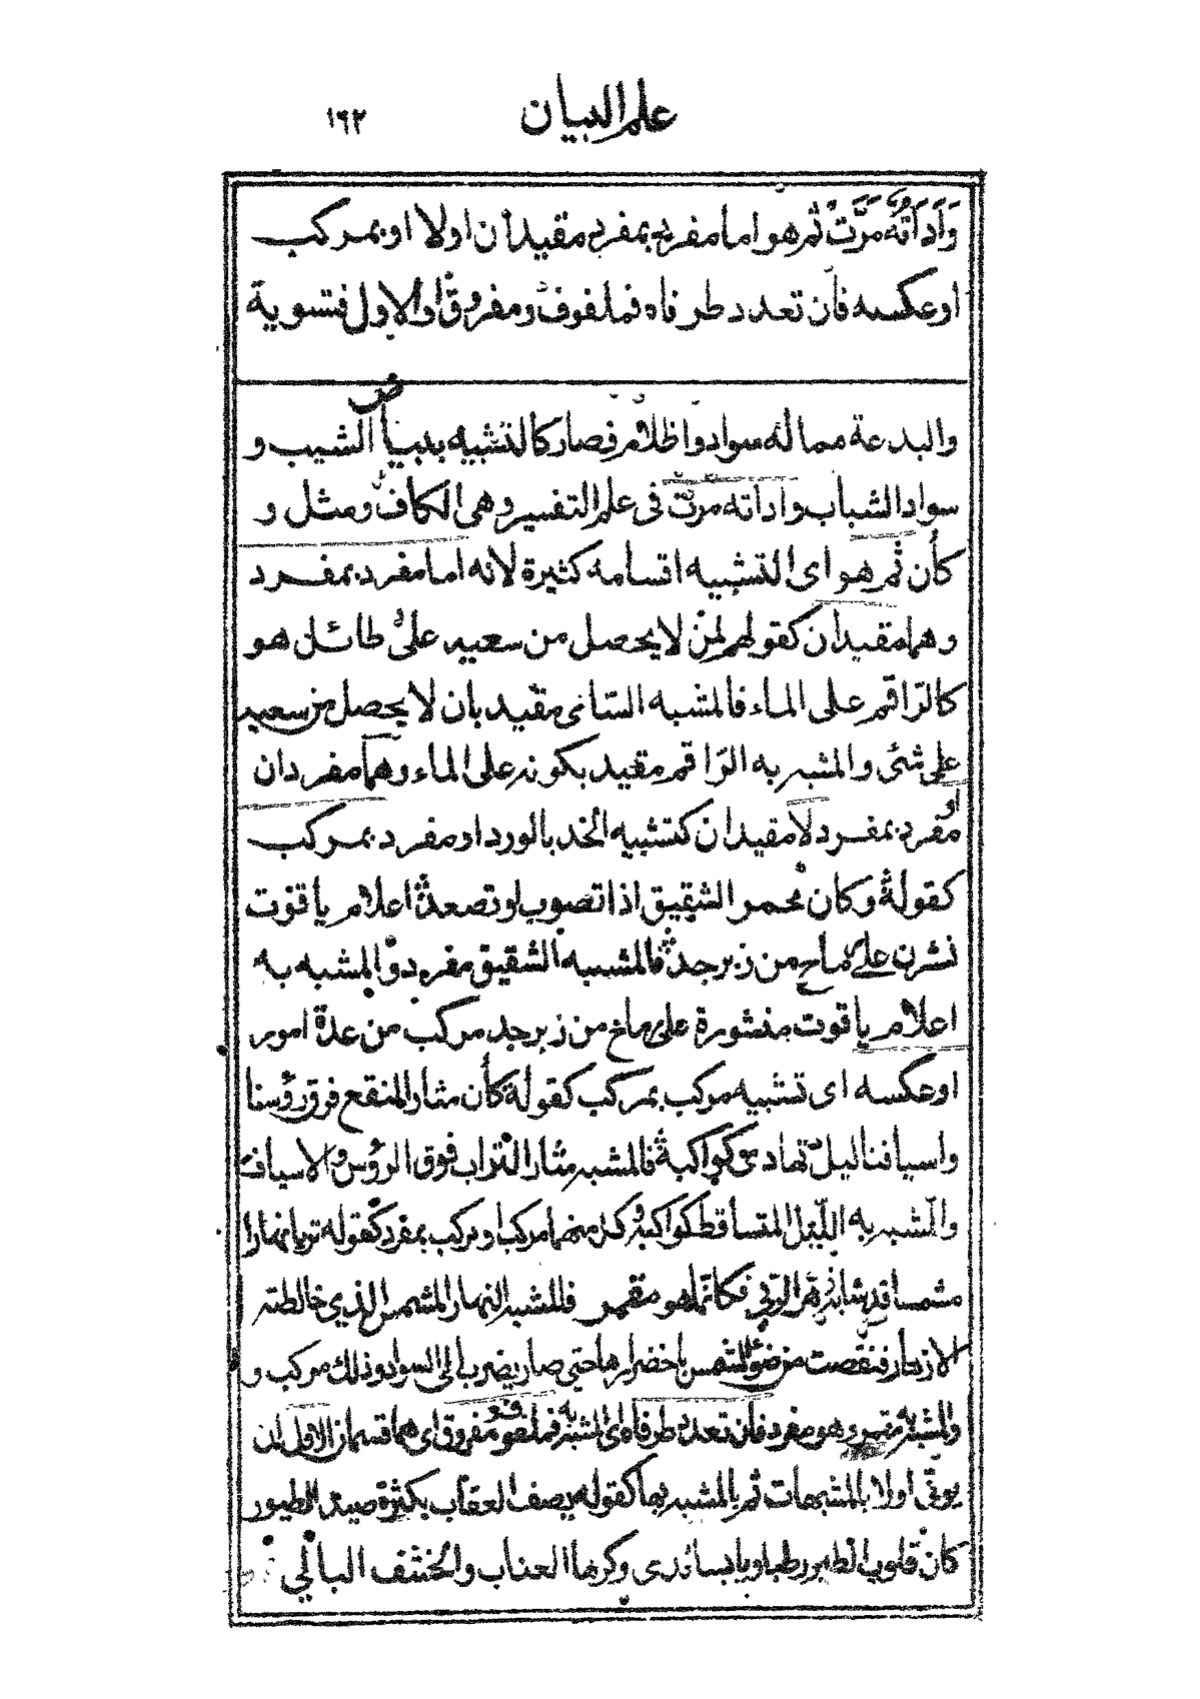 علم البيان ١٦٢
وَأَدَاتُهُ مَرَّتْ ثم هو اما مفرد بمفرد مقيدان اولا او بمركب
او عكسه فان تعدد طرفاه فملفوف ومفروق او الاول فتسوية
والبدعة مما له سواد واظلام فصار كالتشبيه ببياض الشيب و
سواد الشباب واداته مرت فى علم التفسير وهى الكاف ومثل و
كأن ثم هو اى التشبيه اقسامه كثيرة لانه اما مفرد بمفرد
وهما مقيدان كقولهم لمن لا يحصل من سعيه على طائل هو
كالراقم على الماء فالمشبه الساعى مقيد بان لا يحصل من سعيه
على شئ والمشبه به الراقم مقيد بكونه على الماء وهما مفردان او
مفرد بمفرد لا مقيدان كتشبيه الخد بالورد او مفرد بمركب
كقوله وكان محمر الشقيق اذا تصوب او تصعد اعلام ياقوت
نشرن على رماح من زبرجد فالمشبه الشقيق مفرد والمشبه به
اعلام ياقوت منشورة على رماح من زبرجد مركب من عدة امور
او عكسه اى تشبيه مركب بمركب كقوله كأن مثار النقع فوق رؤسنا
واسيافنا ليل تهاوى كواكبه فالمشبه مثار التراب فوق الرؤس والاسياف
والمشبه به الليل المتساقط كواكبه وكل منهما مركب او مركب بمفرد كقوله تريا نهارا
مشمسا قد شابه زهر الربى فكانما هو مقمر فالمشبه النهار المشمس الذي خالطته
الازهار فنقصت من ضوء الشمس باخضرارها حتى صار يضرب الى السواد وذلك مركب و
والمشبه به مقمر وهو مفرد فان تعدد طرفاه اى المشبه به فملفوف ومفروق اى هما قسمان الاول ان
يوتى اولا بالمشبهات ثم بالمشبه بها كقوله يصف العقاب بكثرة صيد الطيور
كان قلوب الطير رطبا ويابسا لدى وكرها العناب والخشف البالي